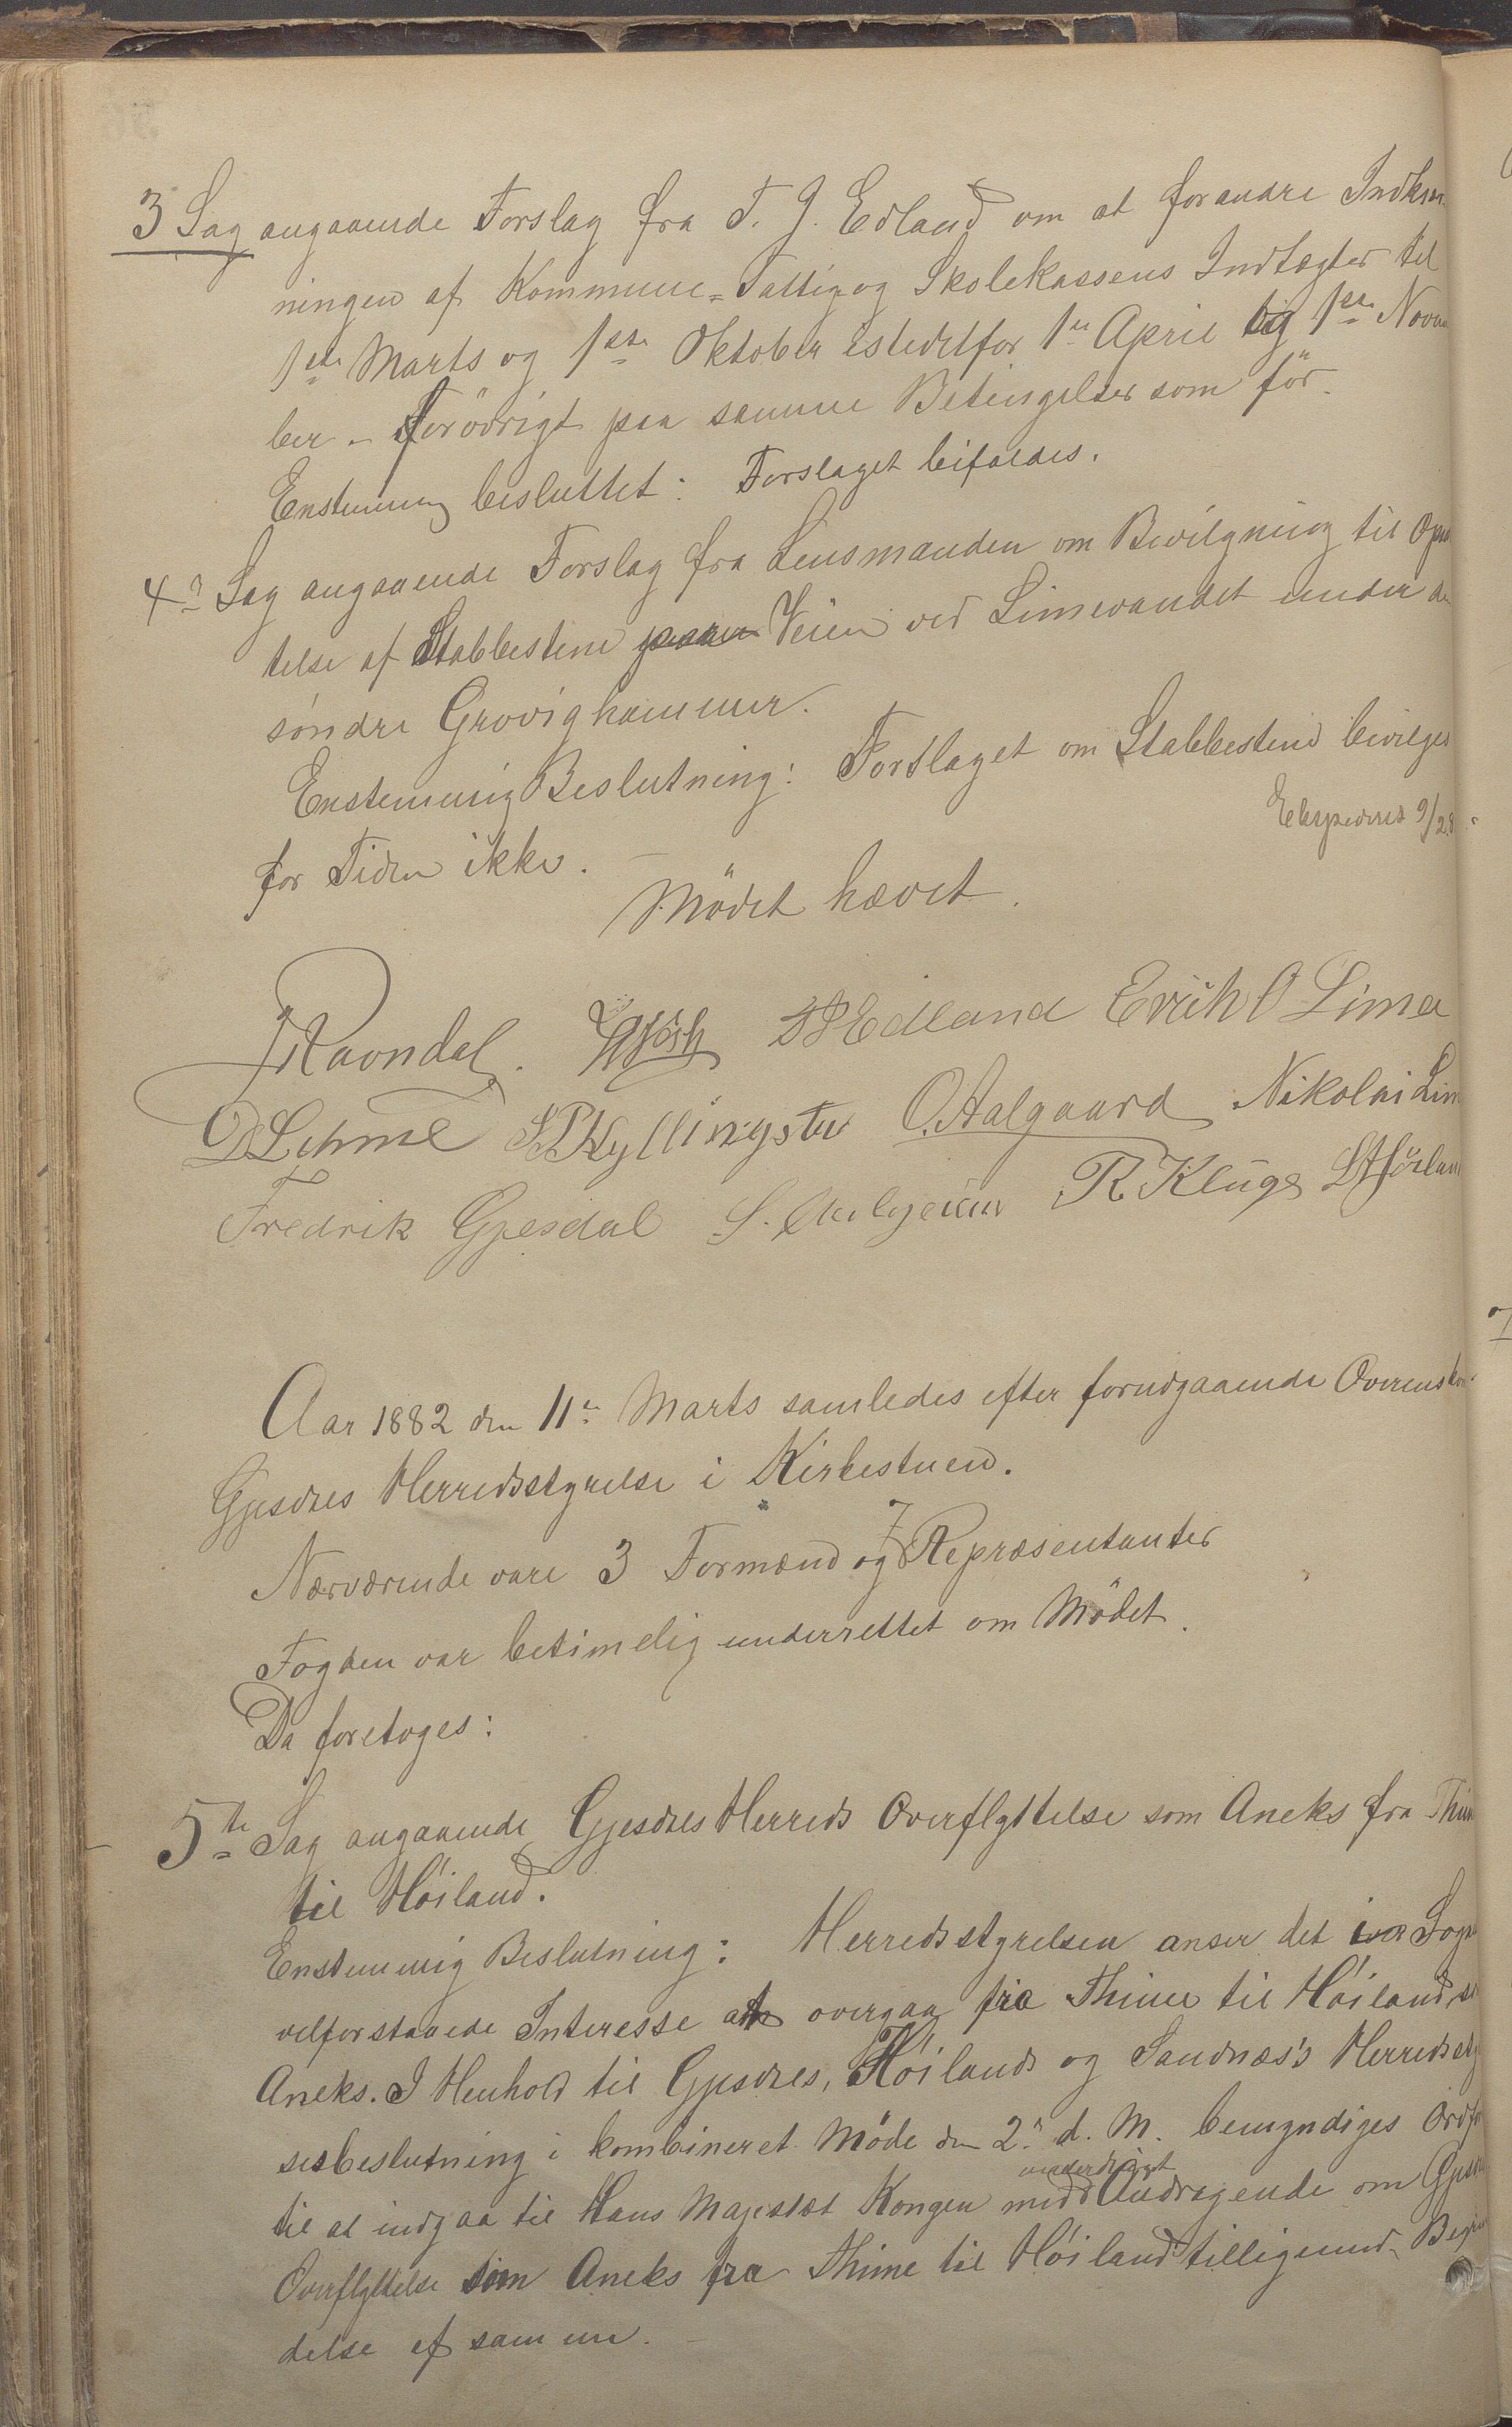 3 Sag angaaende Forslag fra T. J. Edland om at forandre Indkræv-
ningen af Kommune= Fattig og Skolekassens Indtægter til
1ste Marts og 1ste Oktober istedetfor 1ste April og 1ste Novem
ber – forövrigt paa samme Betingelser som för.
Enstemmig besluttet: Forslaget bifaldes.
4de Sag angaaende Forslag fra Lensmanden om Bevilgning til Opsæt
telse af Stabbestene Veien ved Limevandet under de
söndre Grovighammer.
Enstemmig Beslutning: Forslaget om Stabbestene bevilges
Ekspederet 9/2 8
for Tiden ikke. –
Mödet hævet.
Ravndal. TS Edland Erik O Lima
O Lima SP Kyllingstad O. Aalgaard Nikolai Lim
Fredrik Gjesdal S. R Kluge
Aar 1882 den 11te Marts samledes efter forudgaaende Overensko
Gjesdals Herredsstyrelse i Kirkestuen.
Nærværende vare 3 Formænd og 7 Repræsentanter
Fogden var betimelig underrettet om Mödet.
Da foretoges:
5te Sag angaaende Gjesdals Herreds Overflyttelse som Aneks fra Thim
til Höiland.
Enstemmig Beslutning: Herredsstyrelsen anser det i Sogn
velforstaaede Interesse at overgaa fra Thime til Höiland s
Aneks. I Henhold til Gjesdals, Höilands og Sandnæs's Herredssty
sesbeslutning i kombineret Möde den 2den d. M. bemyndiges Ordf
til at indgaa til Hans Majestæt Kongen med underdanigst Andragende om Gjesd
Overflyttelse som Aneks fra Thime til Höiland tilligemed Begrun
delse af samme. –